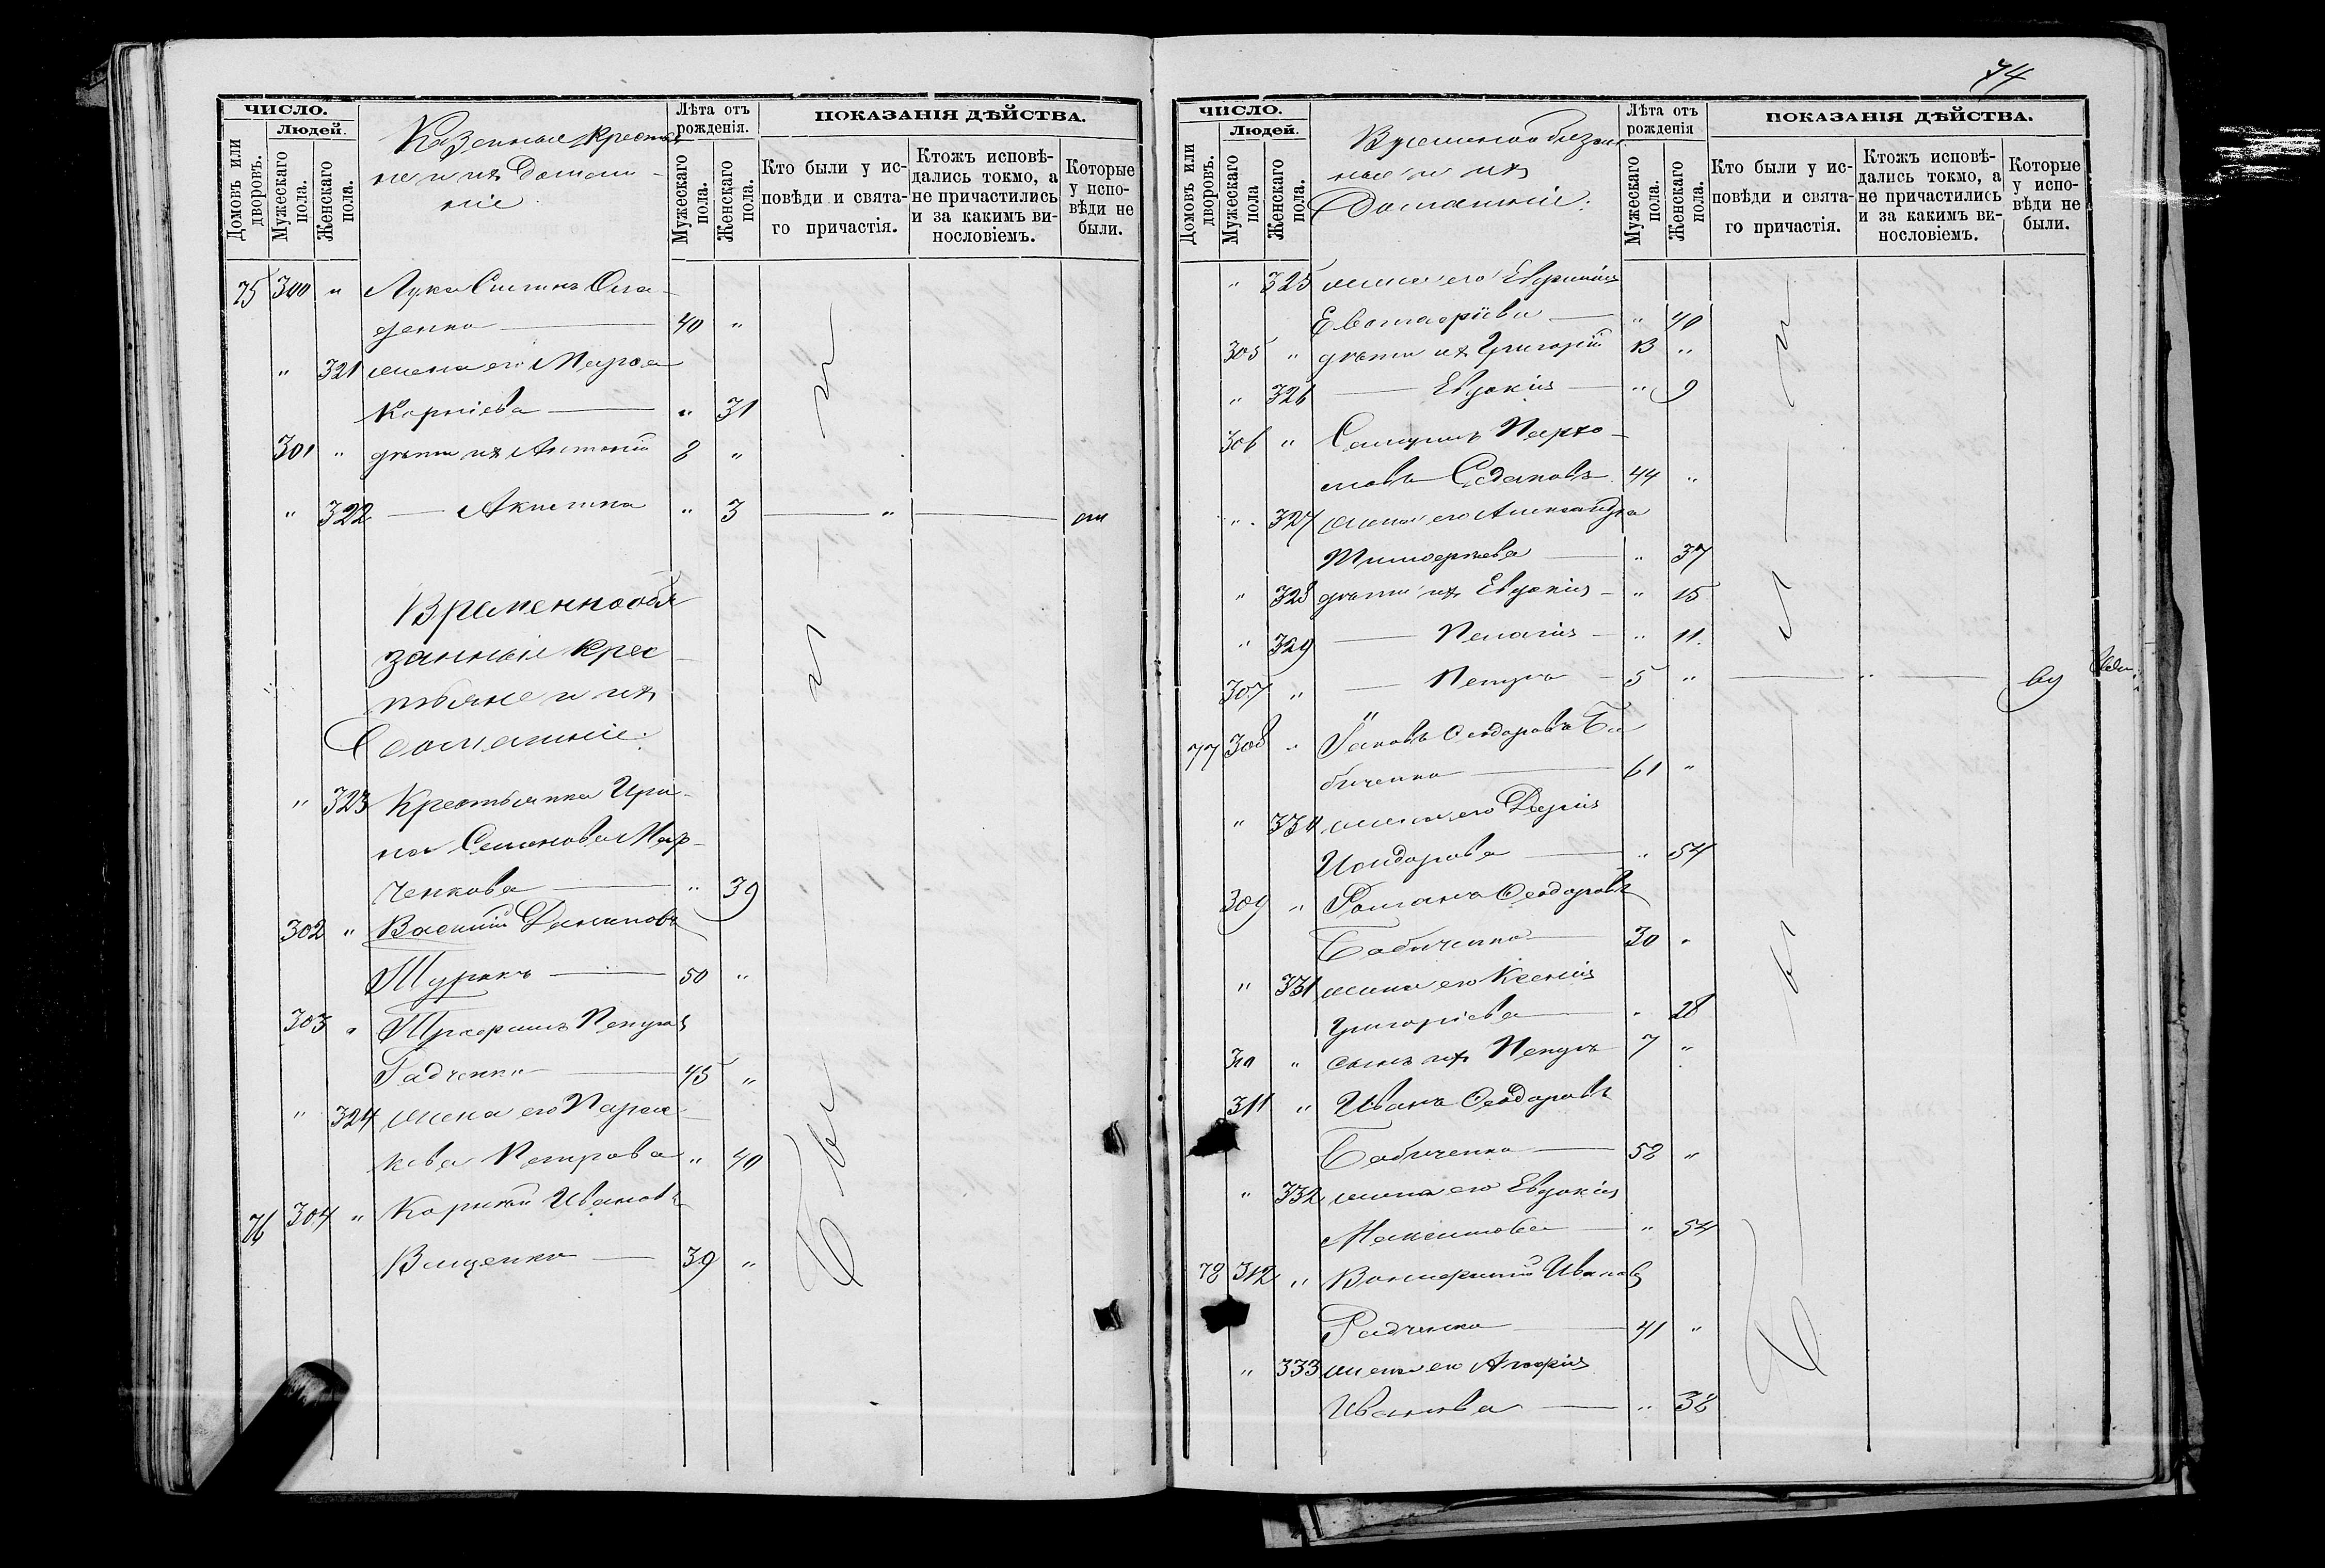 ЧИСЛО.
Людей.
Домовъ или дворовъ.
Мужескаго пола.
Женскаго пола.
Казенные крестья
не и ихъ домаш-
ніе.
Лѣта отъ рожденія.
Мужескаго пола.
Женскаго пола.
ПОКАЗАНІЯ ДѢЙСТВА.
Кто были у ис-
повѣди и свята-
го причастія.
Ктожъ исповѣ-
дались токмо, а
не причастились
и за какимъ ви-
нословіемъ.
Которые
у испо-
вѣди не
были.
75 300 " Лука
денко — 40 "
" 321 жена его Марѳа
Корніева — " 31
301 " дѣти ихъ Антоній 8 "
" 322 — Акилина " 3 — " — 
Временнообя
занныіе крес-
тьяне и ихъ
Домашніе:
" 323 Крестьянка Ири-
на Семенова Мар-
ченкова — " 39
302 " Василій Даниловъ
Турикъ — 50 "
303 " Трофимъ Петровъ
Радченко — 45 "
" 324 жена его Парас-
кева Петрова " 40
76 304 " Корній Ивановъ
Ващенко — 39 "
Были
74
ЧИСЛО.
Людей.
Домовъ или дворовъ.
Мужескаго пола
Женскаго пола.
Временнообязан-
ные и ихъ
Домашніе:
Лѣта отъ рожденія
Мужескаго пола.
Женскаго пола.
ПОКАЗАНІЯ ДѢЙСТВА.
Кто были у ис-
повѣди и свята-
го причастія.
Ктожъ исповѣ-
дались токмо, а
не причастились
и за какимъ ви-
нословіемъ.
Которые
у испо-
вѣди не
были.
" 325 жена его
— " 40
305 " дѣти ихъ Григорій 13 "
" 326 — Евдокія — " 9
306 " Самуилъ Пархо-
мовъ 44 "
" 327 жена его Александра
Тимоѳеева — " 37
" 328 дѣти ихъ Евдокія — " 15
" 329 — Пелагія — " 11.
307 " — Петръ — 5 " — " —
77 308 " Іаковъ Ѳеодоровъ Ба
биченко — 61 "
" 330 жена его Дарія
Исидорова — " 54
309 " Романъ Ѳеодоровъ
Бабиченко — 30 "
" 331 жена его Ксенія
Григоріева — " 28
310 " сынъ ихъ Петръ 7 "
311 " Иванъ Ѳеодоровъ
Бабиченко — 58 "
" 332 жена его Евдокія
Максимова — " 54
78 312 " Ивановъ
Радченко — 41 "
" 333 жена его
Иванова — " 38
Были